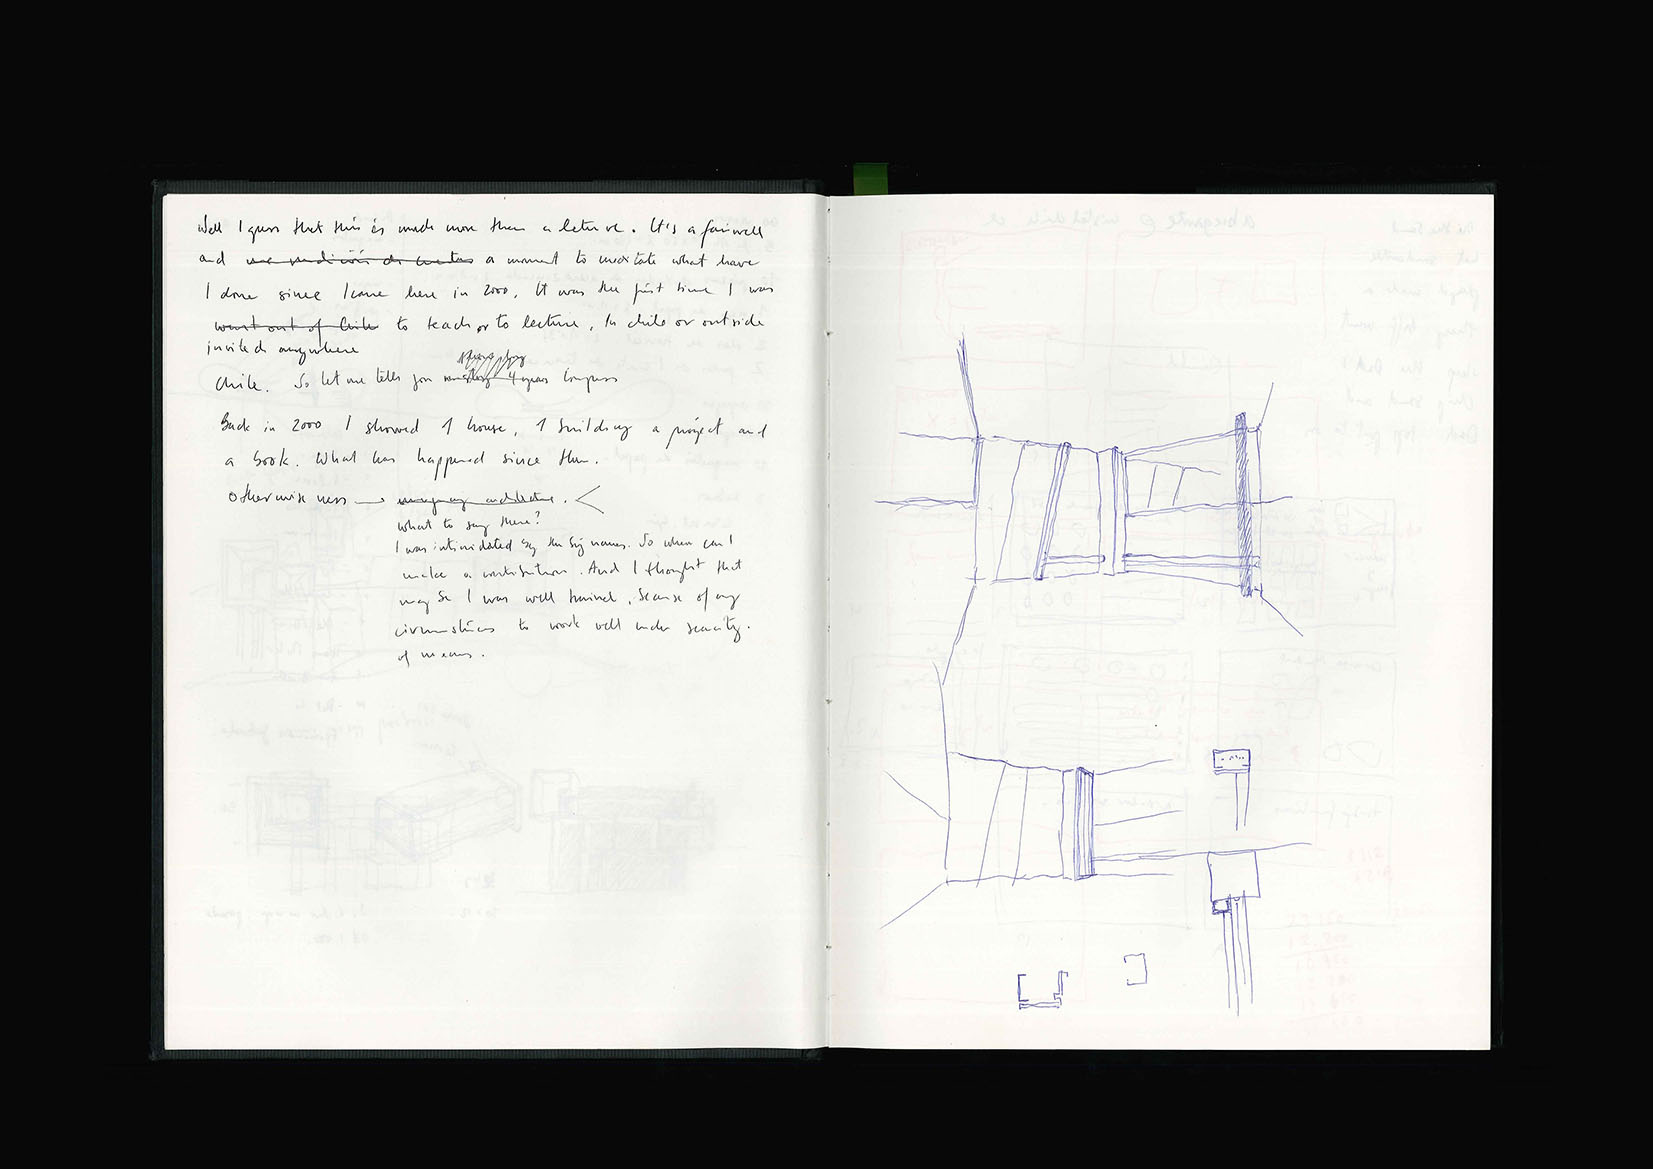 Well I guess that this is much more than a lecture. It's a fairwell
and a moment to meditate what have
I done since I came here in 2000. It was the first time I was
went out of Chile to teach or to lecture, In chile or outside
invited anywhere
Chile. So let me tell you 4 years
Back in 2000 I showed 1 house, 1 building a project and
a book. What has happened since then.
otherwise ness →
what to say there?
I was intimidated by the big names. So when can I
make a contribution. And I thought that
may be I was well trained, because of my
circumstances to work well under scarcity
of means.